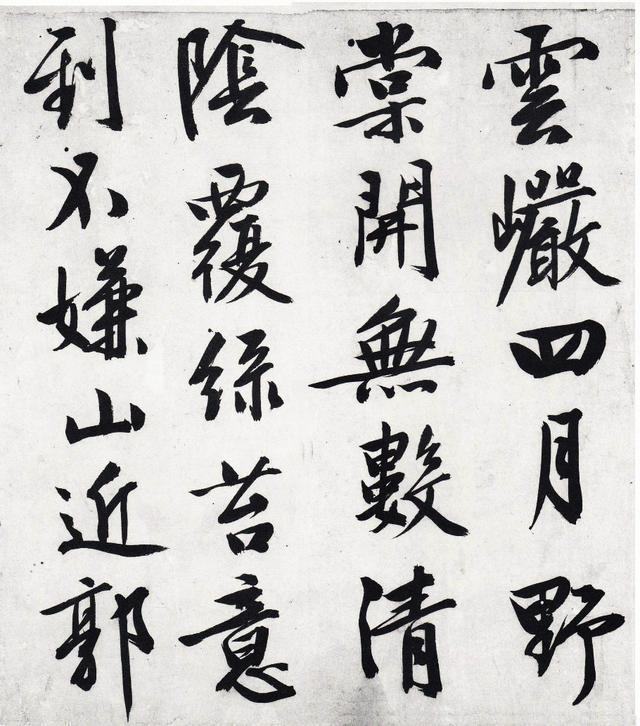 雲巖四月野
棠開無數清
陰覆綠苔意
到不嫌山近郭